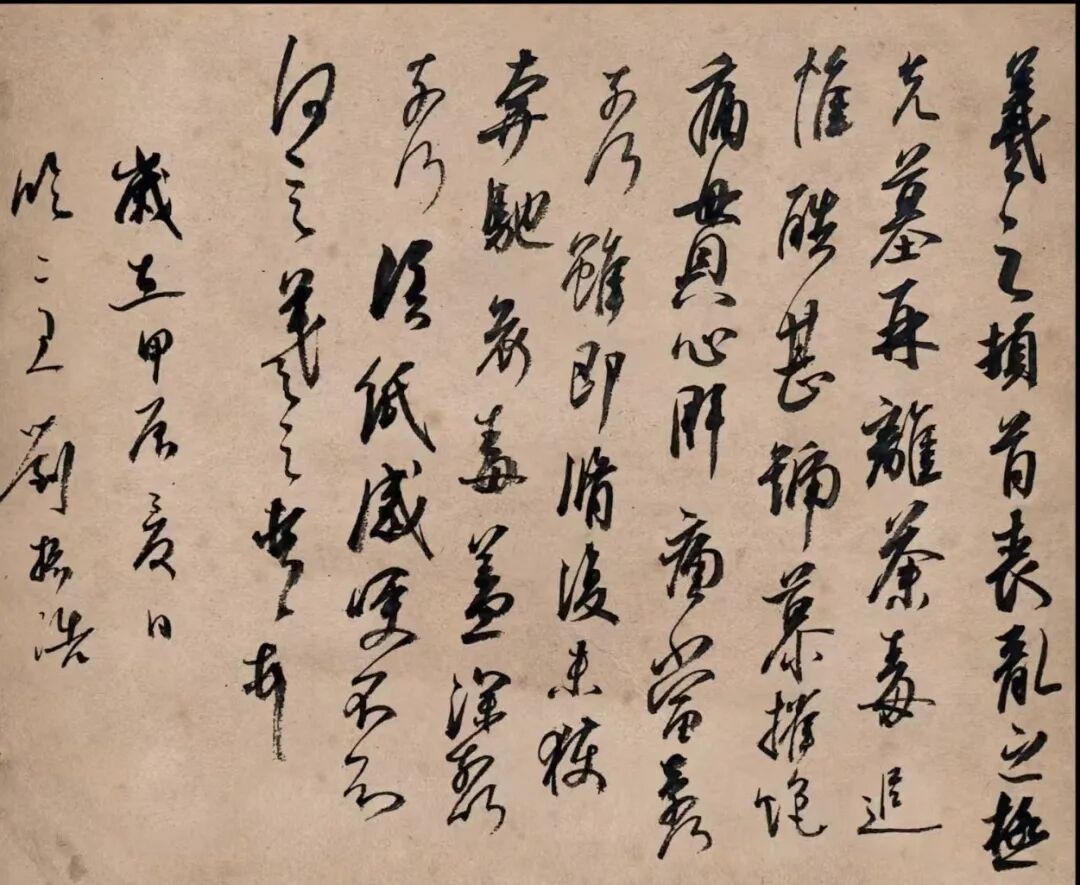 羲之頓首喪亂之極
先墓再離荼毒追
惟酷甚號慕摧絕
痛貫心肝痛當奈何
奈何雖即脩復未獲
奔馳哀毒益深奈何
奈何臨紙感哽不知
何言羲之頓首頓首
歲在甲辰夏日
臨二王劉浩